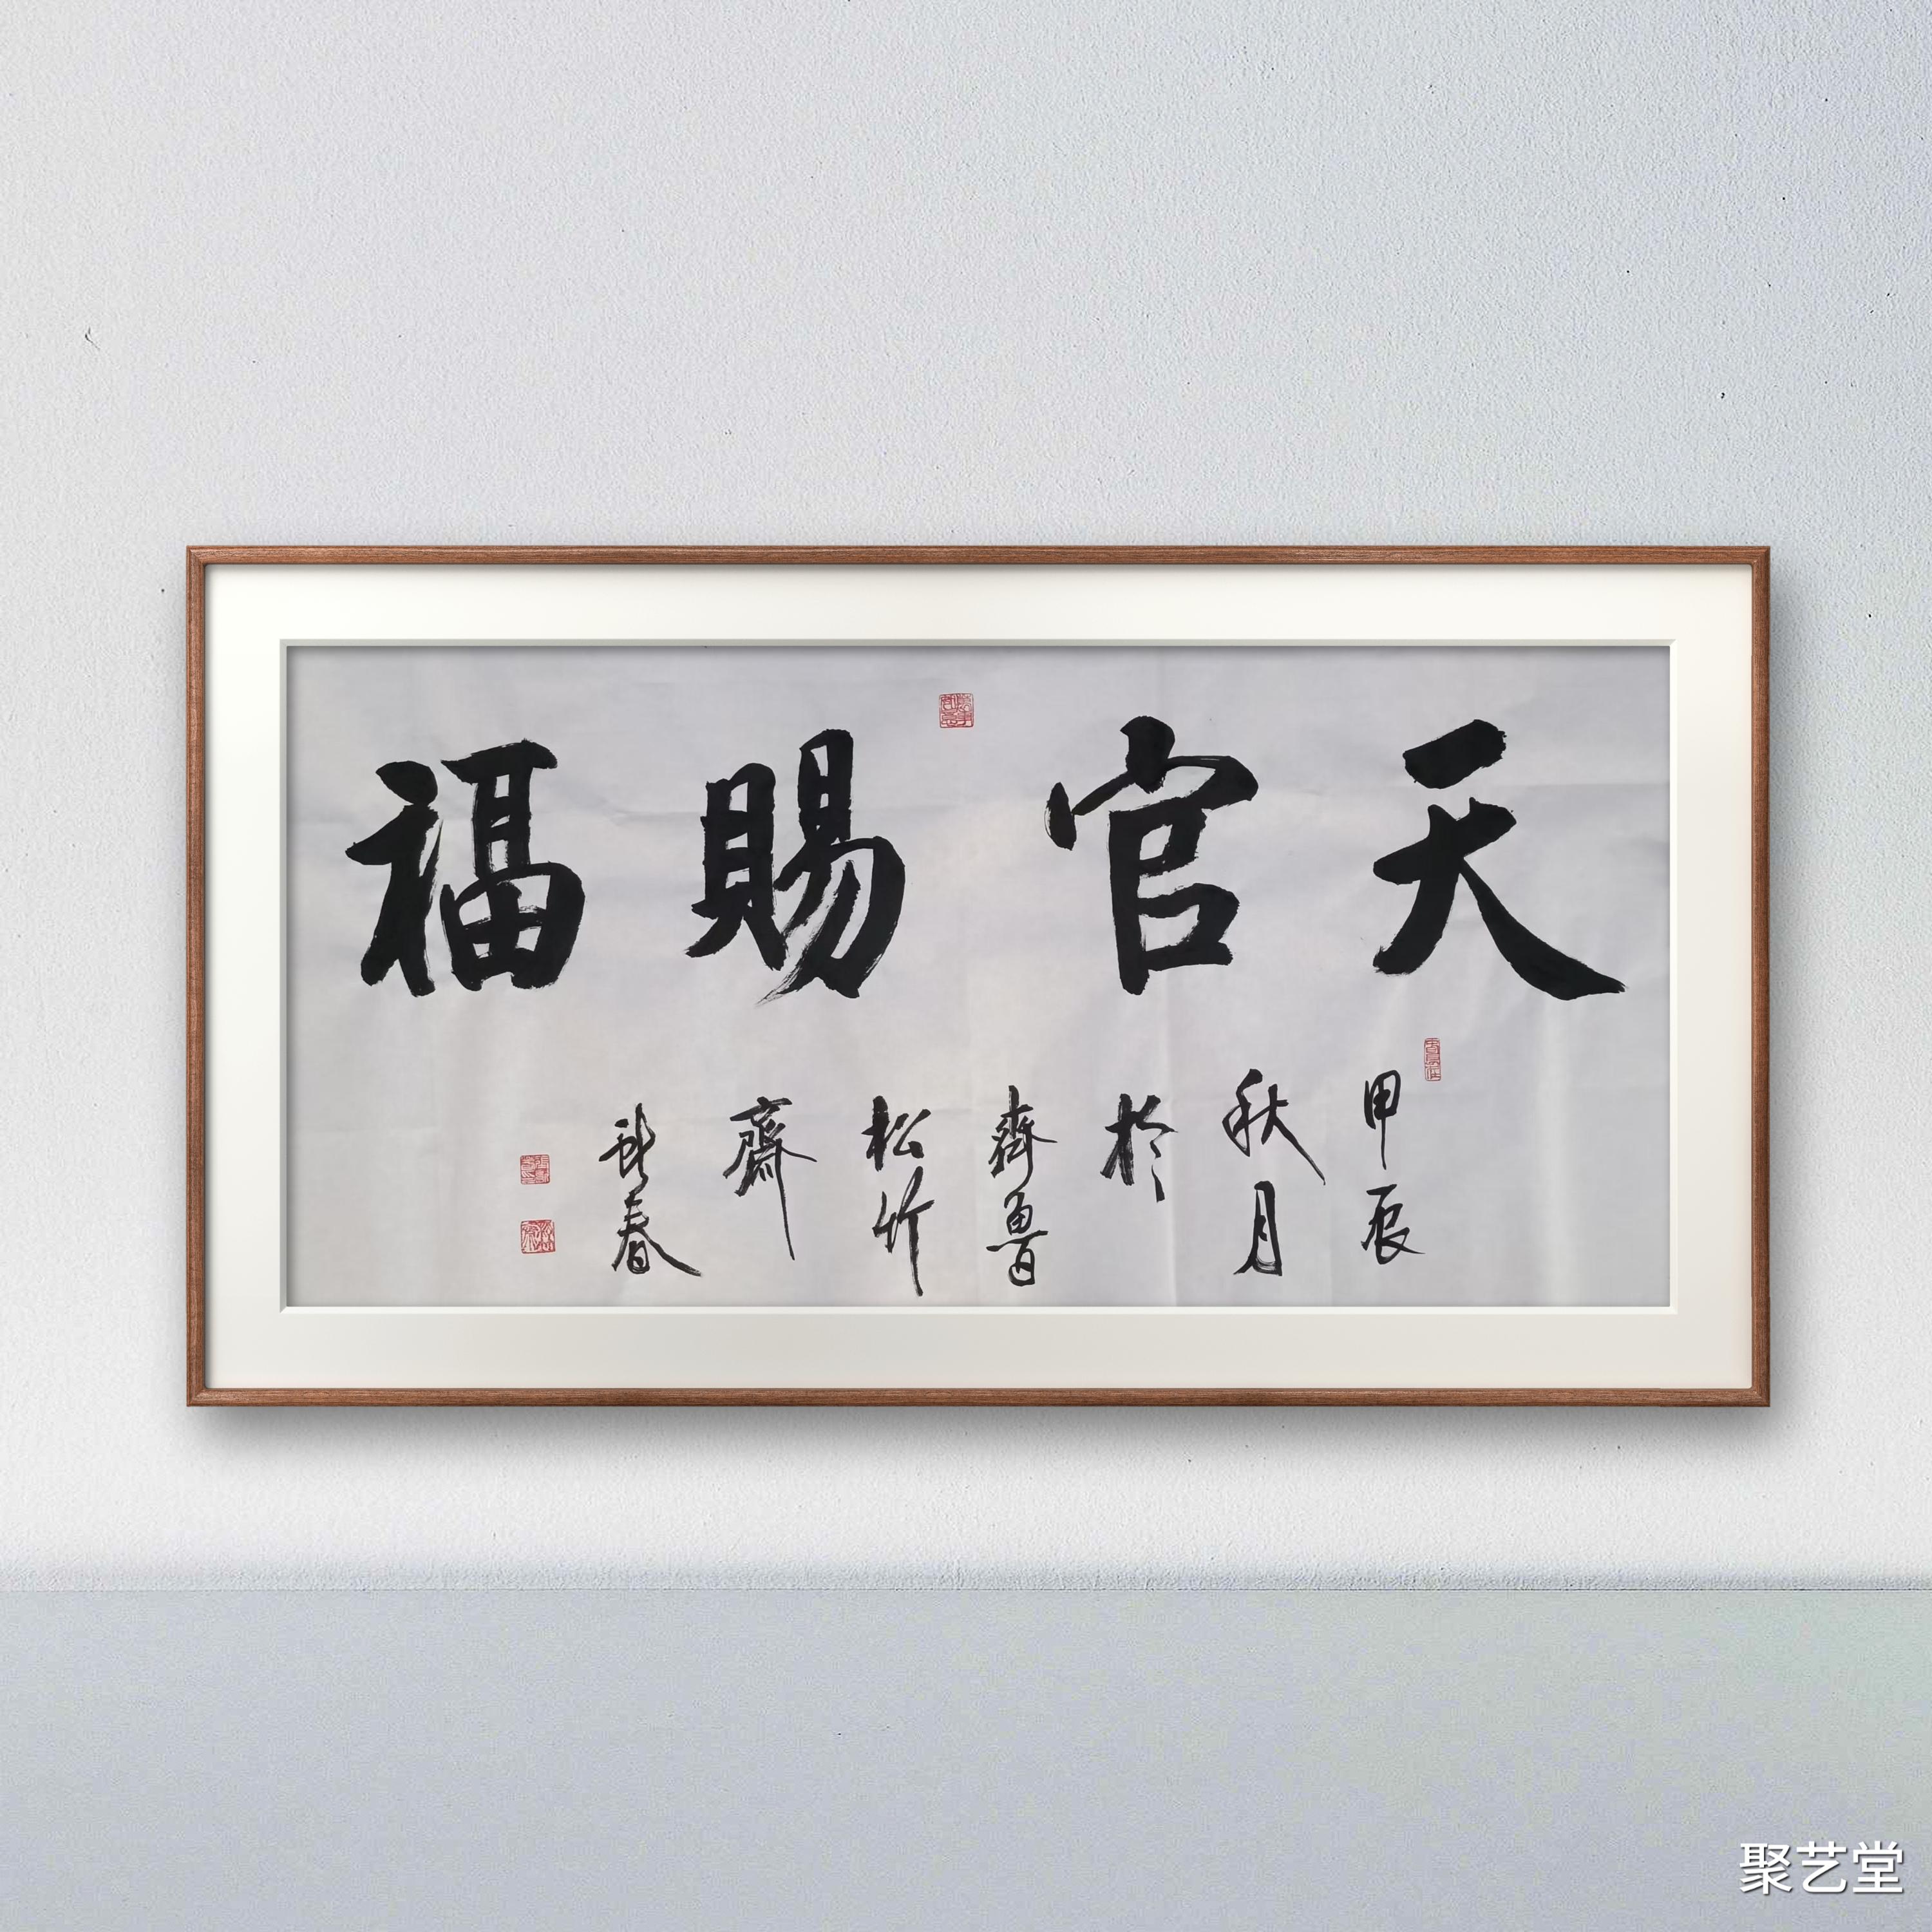 天官賜福
甲辰
秋月
於
齊魯
松竹
齋
春
聚艺堂